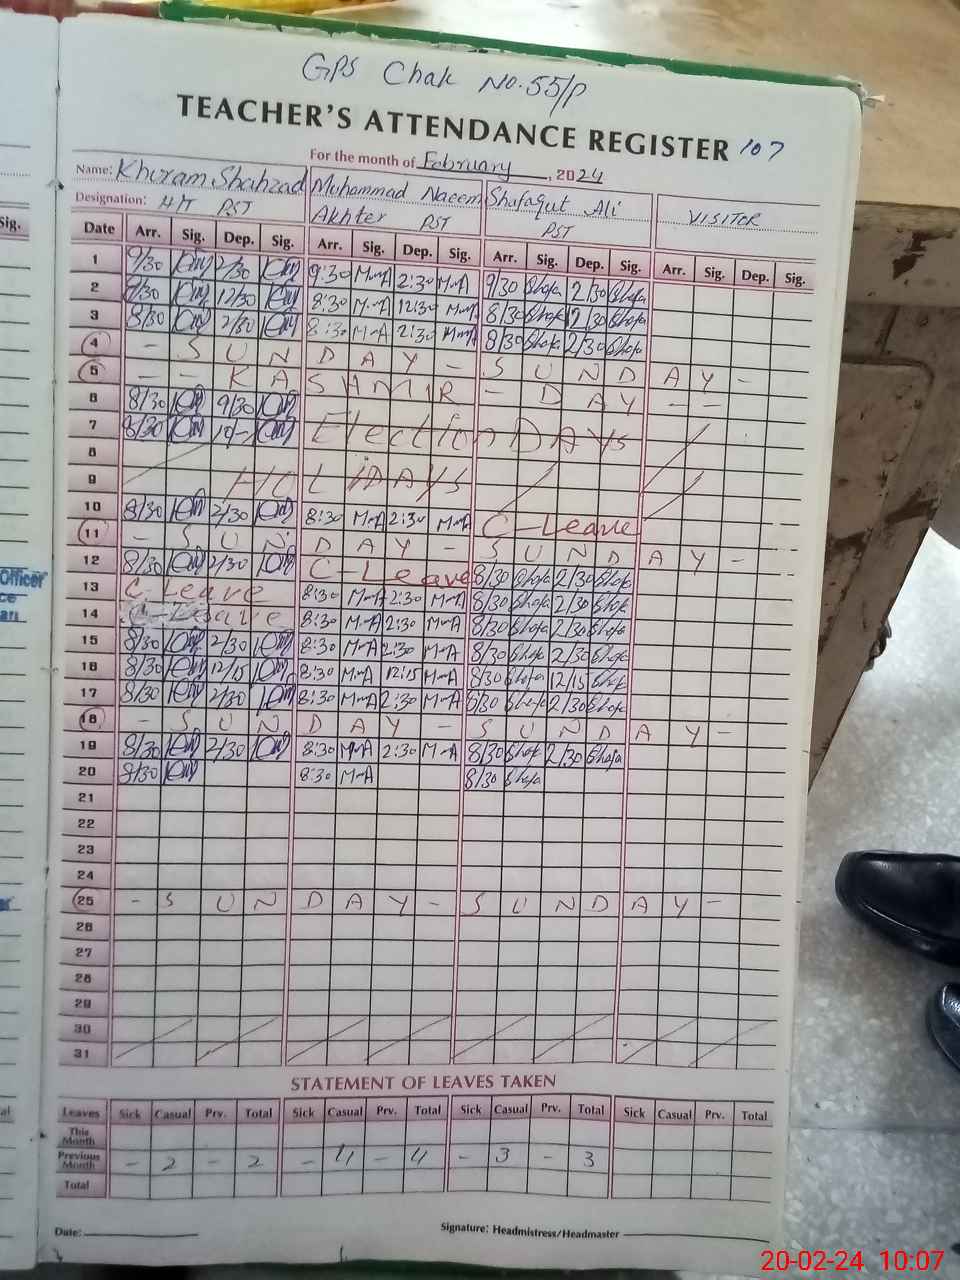 GPS Chak No. 55/P
TEACHER'S ATTENDANCE REGISTER 107
For the month of February, 2024
Name: Khuram Shahzad Muhammad Naeem Akhter Shafaqut Ali VISITOR
Designation: H/T PST PST PST
Date Arr. Sig. Dep. Sig. Arr. Sig. Dep. Sig. Arr. Sig. Dep. Sig. Arr. Sig. Dep. Sig.
1 9/30 2/30 9:30 M-A 2:30 M-A 9/30 Shafa 2/30 Shafa
2 8/30 12/30 8:30 M-A 12:30 M-A 8/30 Shafa 12/30 Shafa
3 8/30 2/30 8:30 M-A 2:30 M-A 8/30 Shafa 2/30 Shafa
4 - S U N D A Y - S U N D A Y -
5 - - K A S H M I R - D A Y - -
6 8/30 9/30
7 8/30 10/- Election DAYS
8
9 HOLIDAYS
10 8/30 2/30 8:30 M-A 2:30 M-A C-Leave
11 - S U N D A Y - S U N D A Y -
12 8/30 2/30 C-Leave 8/30 Shafa 2/30 Shafa
13 C-Leave 8:30 M-A 2:30 M-A 8/30 Shafa 2/30 Shafa
14 C-Leave 8:30 M-A 2:30 M-A 8/30 Shafa 2/30 Shafa
15 8/30 2/30 8:30 M-A 2:30 M-A 8/30 Shafa 2/30 Shafa
16 8/30 12/15 8:30 M-A 12:15 M-A 8/30 Shafa 12/15 Shafa
17 8/30 2/30 8:30 M-A 2:30 M-A 8/30 Shafa 2/30 Shafa
18 - S U N D A Y - S U N D A Y -
19 8/30 2/30 8:30 M-A 2:30 M-A 8/30 Shafa 2/30 Shafa
20 8/30 8:30 M-A 8/30 Shafa
21
22
23
24
25 - S U N D A Y - S U N D A Y -
26
27
28
29
30
31
STATEMENT OF LEAVES TAKEN
Leaves Sick Casual Prv. Total Sick Casual Prv. Total Sick Casual Prv. Total Sick Casual Prv. Total
This Month
Previous Month - 2 - 2 - 4 - 4 - 3 - 3
Total
Date: Signature: Headmistress/Headmaster
Sig.
Officer
20-02-24 10:07